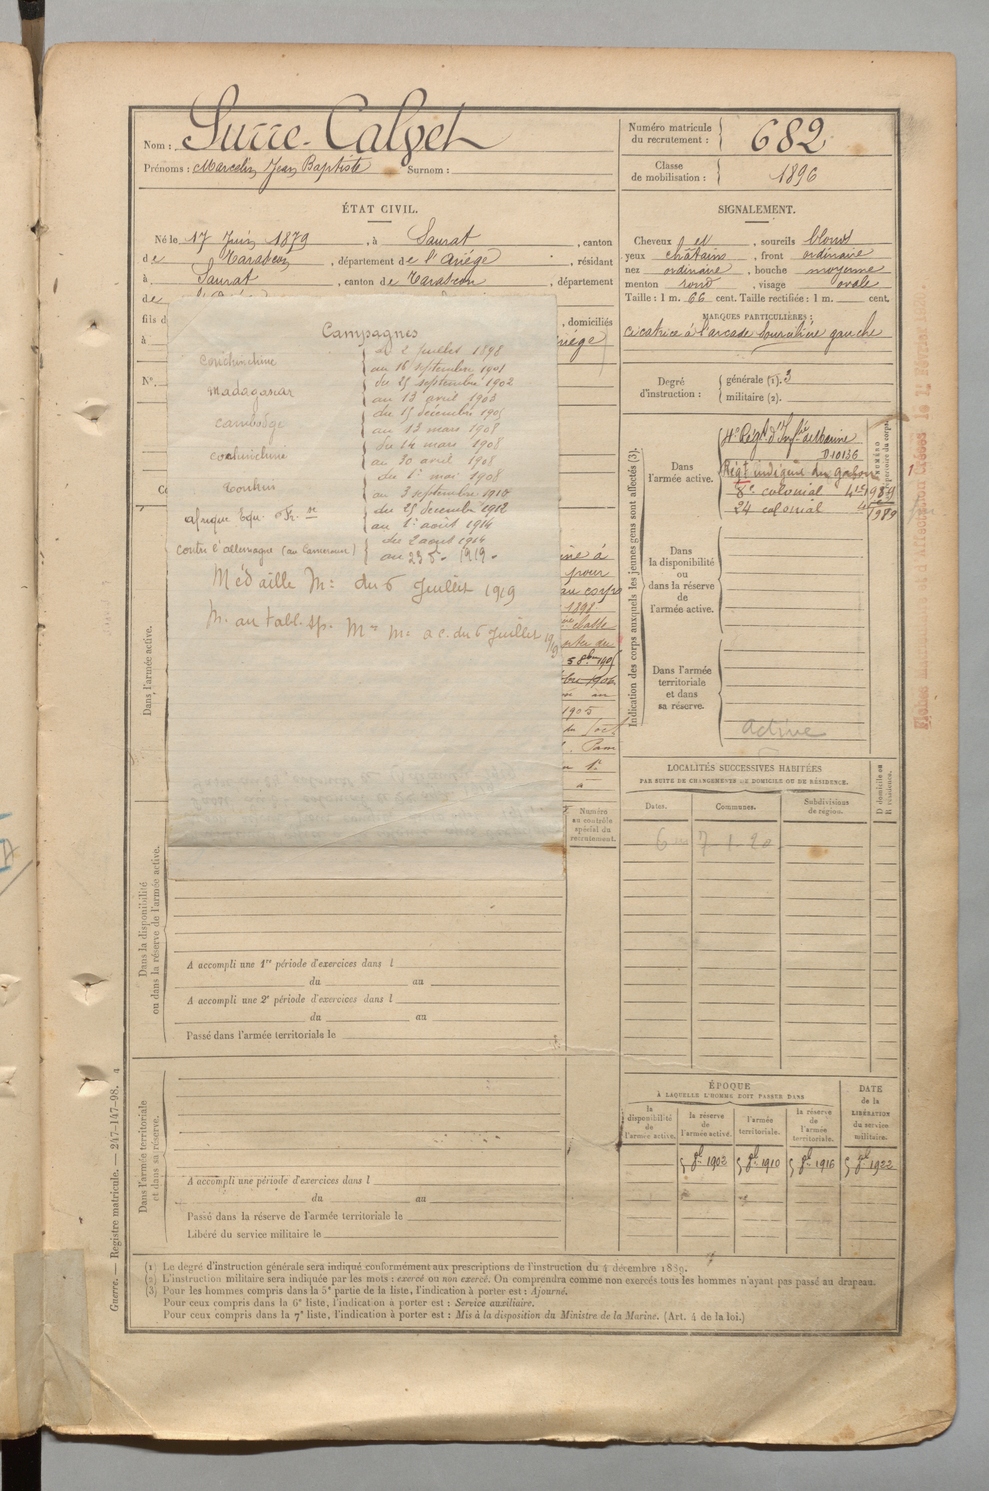 Nom : Surre-Calvet
Prénoms : Marcelin Jean Baptiste Surnom :
Numéro matricule du recrutement : 682
Classe de mobilisation : 1896
ÉTAT CIVIL.
Né le 17 Juin 1879, à Saurat, canton
de Tarascon, département de l'Ariège, résidant
à Saurat, canton de Tarascon, département
de
fils d , domiciliés
à iège
N°.
SIGNALEMENT.
Cheveux et , sourcils blonds
yeux châtains, front ordinaire
nez ordinaire, bouche moyenne
menton rond, visage ovale
Taille : 1 m. 66 cent. Taille rectifiée : 1 m. cent.
MARQUES PARTICULIÈRES :
Cicatrice à l'arcade sourcilière gauche
Degré d'instruction : générale (1). 3
militaire (2).
Campagnes
Cochinchine du 2 Juillet 1898
au 16 septembre 1901
Madagascar du 25 septembre 1902
au 13 avril 1903
Cambodge du 15 décembre 1905
au 13 mars 1908
Cochinchine du 14 mars 1908
au 30 avril 1908
Tonkin du 1er mai 1908
au 3 septembre 1910
Afrique Equ. Fr. se du 25 décembre 1912
au 1er août 1914
contre l'allemagne (au Cameroun) du 2 août 1914
au 23 5 - 1919 -
Médaille Mre du 6 Juillet 1919
M. au tabl. sp. Mre a c. du 6 Juillet 1919
ine à
pour
au corps
1898
1905
Indication des corps auxquels les jeunes gens sont affectés (3).
Dans l'armée active.
4e Régt d'Infie de Marine
D10136
Régt indigène du gabon
8e colonial
24 colonial
NUMÉRO
répertoire du corps.
Dans la disponibilité ou dans la réserve de l'armée active.
Dans l'armée territoriale et dans sa réserve.
active
Dans l'armée active.
Dans la disponibilité ou dans la réserve de l'armée active.
Numéro au contrôle spécial du recrutement.
LOCALITÉS SUCCESSIVES HABITÉES
PAR SUITE DE CHANGEMENTS DE DOMICILE OU DE RÉSIDENCE.
Dates. Communes. Subdivisions de région. D domicile ou R résidence.
7-1-20
A accompli une 1re période d'exercices dans l
du au
A accompli une 2e période d'exercices dans l
du au
Passé dans l'armée territoriale le
Dans l'armée territoriale et dans sa réserve.
A accompli une période d'exercices dans l
du au
Passé dans la réserve de l'armée territoriale le
Libéré du service militaire le
ÉPOQUE
À LAQUELLE L'HOMME DOIT PASSER DANS
la disponibilité de l'armée active. la réserve de l'armée active. l'armée territoriale. la réserve de l'armée territoriale. DATE de la LIBÉRATION du service militaire.
1902 1910 1916 1922
(1) Le degré d'instruction générale sera indiqué conformément aux prescriptions de l'instruction du 4 décembre 1889.
(2) L'instruction militaire sera indiquée par les mots : exercé ou non exercé. On comprendra comme non exercés tous les hommes n'ayant pas passé au drapeau.
(3) Pour les hommes compris dans la 5e partie de la liste, l'indication à porter est : Ajourné.
Pour ceux compris dans la 6e liste, l'indication à porter est : Service auxiliaire.
Pour ceux compris dans la 7e liste, l'indication à porter est : Mis à la disposition du Ministre de la Marine. (Art. 4 de la loi.)
Guerre. — Registre matricule. — 247-147-98.